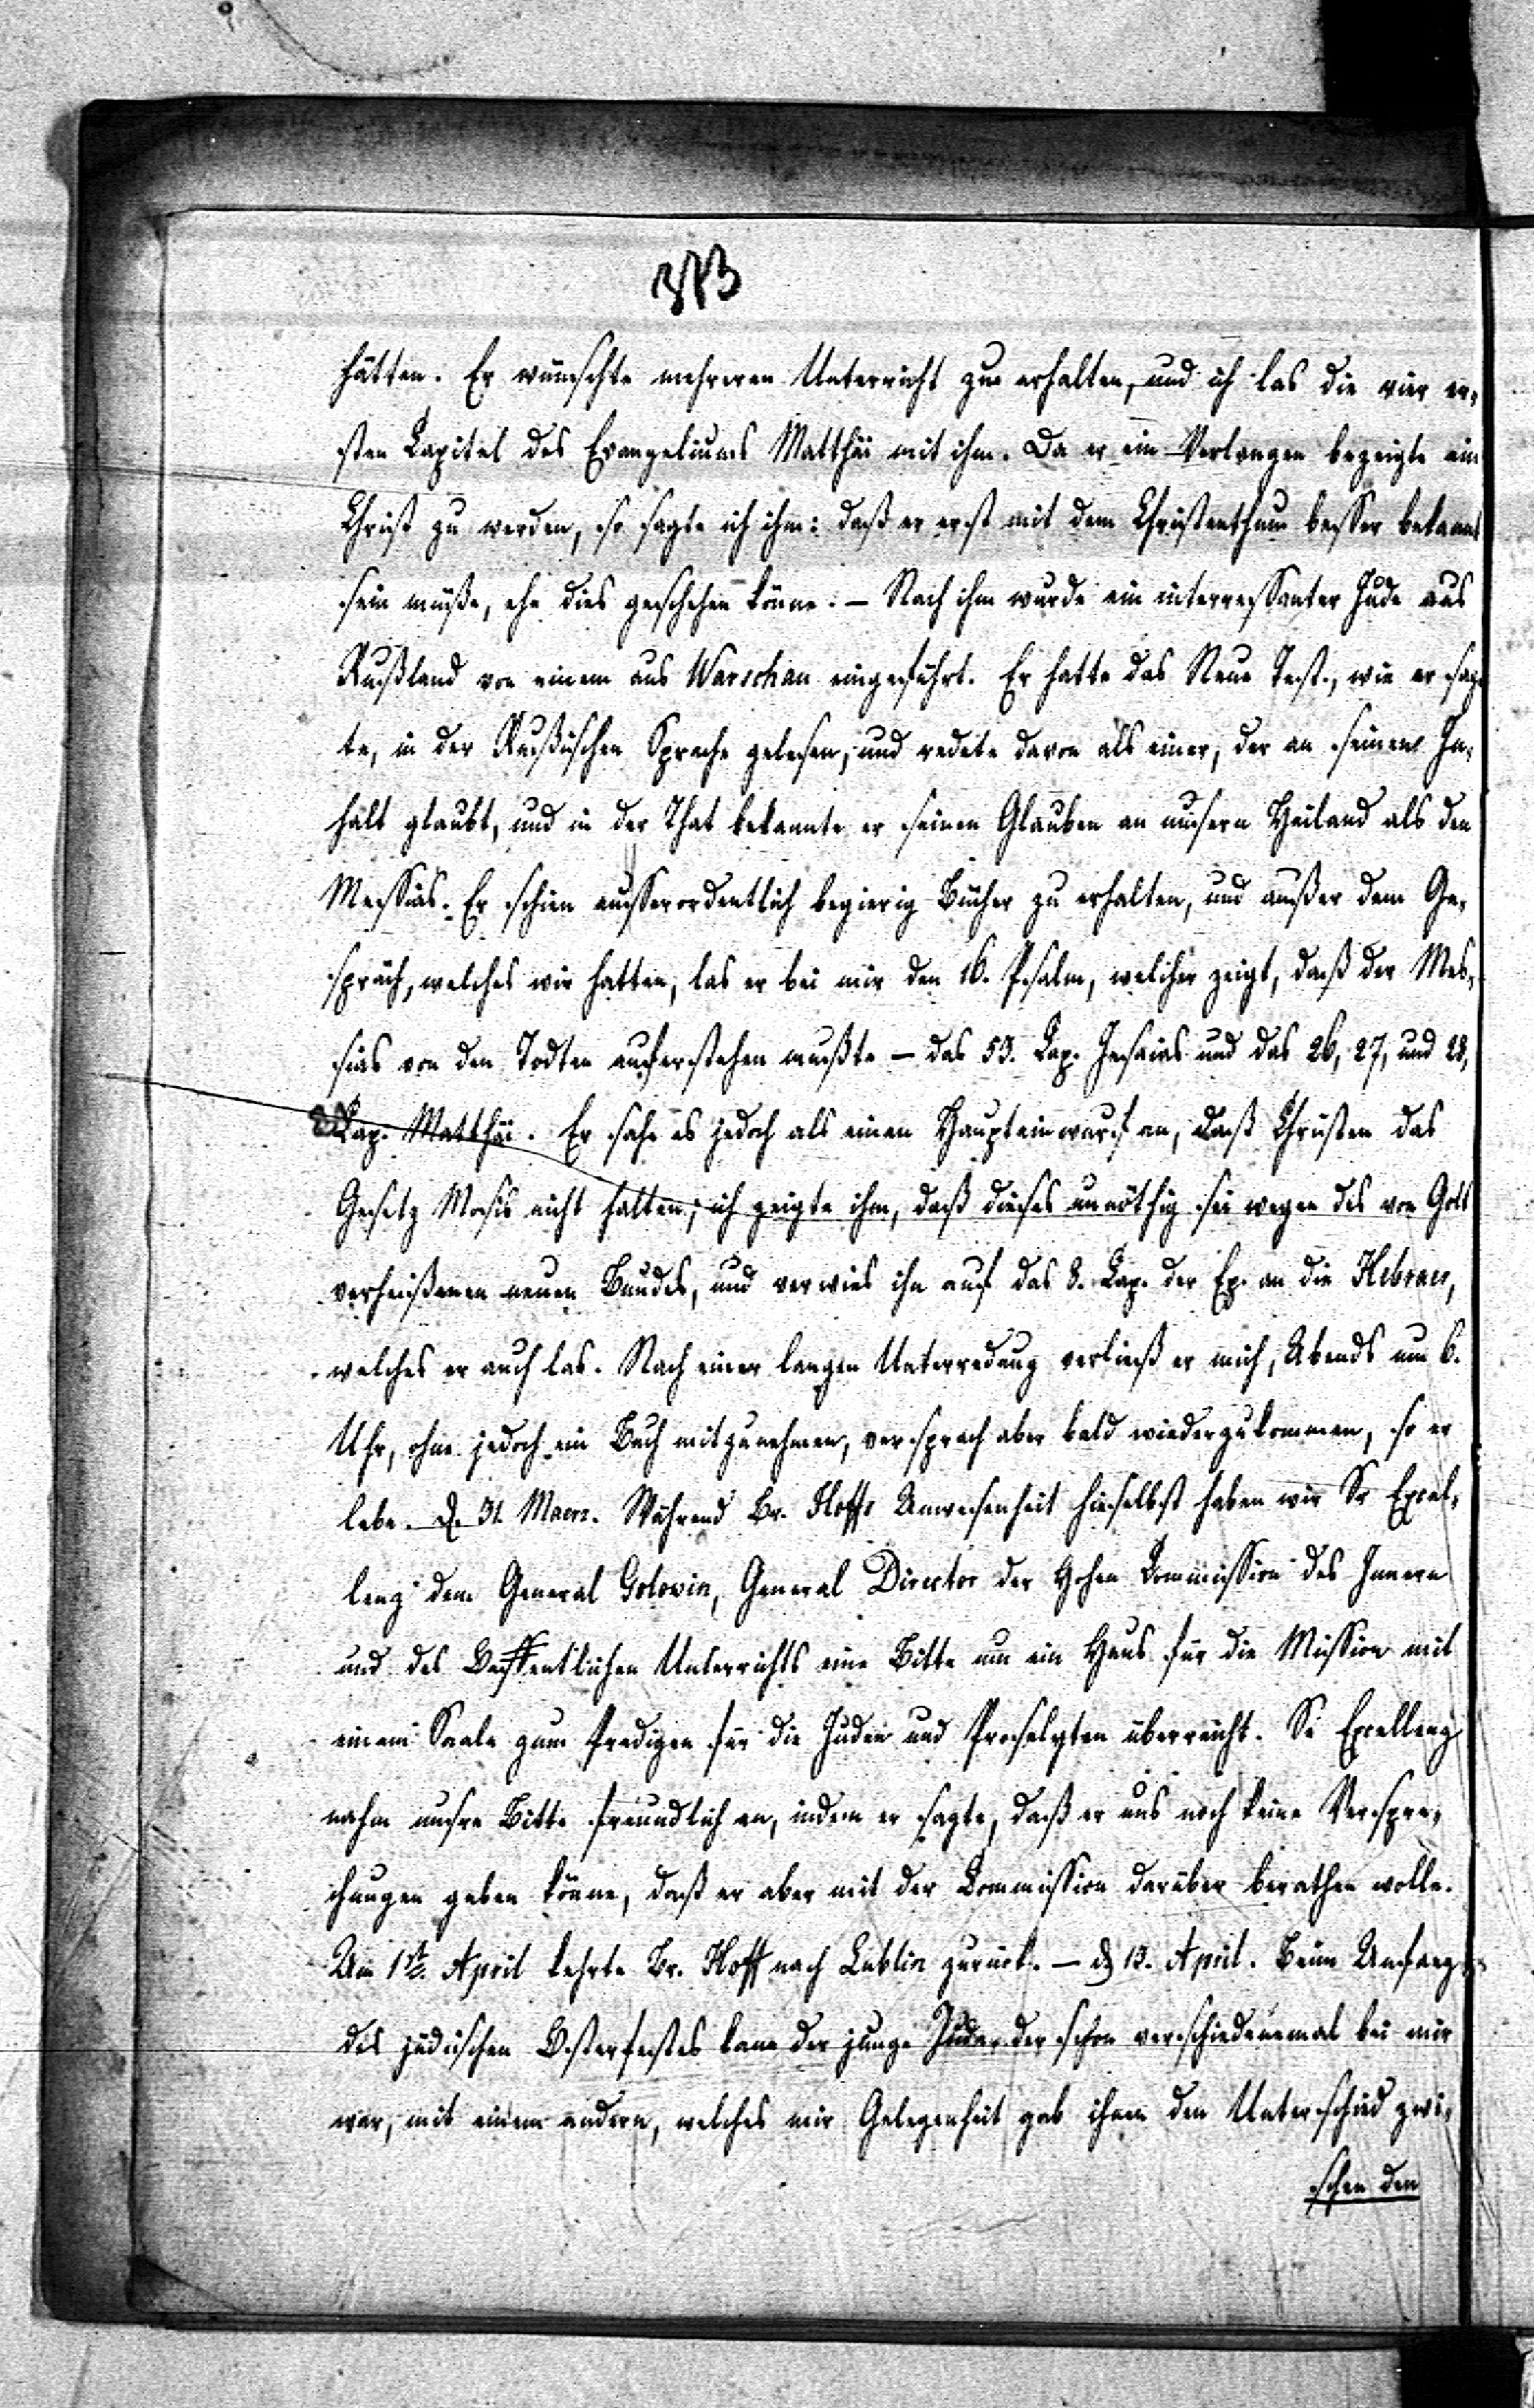 373
hätten. Er wünschte mehreren Unterricht zu erhalten, und ich las die vier er-
sten Capitel des Evangeliums Matthäi mit ihm. Da er ein Verlangen bezeigte ein
Christ zu werden, so sagte ich ihm: daß er erst mit dem Christenthum besser bekannt
sein müße, ehe dies geschehen könne. — Nach ihm wurde ein interressanter Jude aus
Rußland von einem aus Warschau eingeführt. Er hatte das Neue Test., wie er sag-
te, in der Rußischen Sprache gelesen, und redete davon als einer, der an seinen In-
halt glaubt, und in der That bekannte er seinen Glauben an unsern Heiland als den
Messias. Er schien ausserordentlich begierig Bücher zu erhalten, und außer dem Ge-
spräch, welches wir hatten, las er bei mir den 16. Psalm, welcher zeigt, daß der Mes-
sias von den Todten auferstehen mußte — das 53. Cap. Jesaias und das 26, 27, und 28,
Cap. Matthäi. Er sahe es jedoch als einen Haupteinwurf an, daß Christen das
Gesetz Mosis nicht halten; ich zeigte ihm, daß dieses unnöthig sei wegen des von Gott
verheißenen neuen Bundes, und verwies ihn auf das 8. Cap. der Ep. an die Hebraer,
welches er auch las. Nach einer langen Unterredung verließ er mich, Abends um 6.
Uhr, ohne jedoch ein Buch mitzunehmen, versprach aber bald wiederzukommen, so er
lebe. D. 31. Maerz. Während Br. Hoffs Anwesenheit hieselbst haben wir Sr Excel-
lenz dem General Golovin, General Director der Hohen Commission des Innern
und des Oeffentlichen Unterrichts eine Bitte um ein Haus für die Mission mit
einem Saale zum Predigen für die Juden und Proselyten überreicht. Se Excellenz
nahm unsre Bitte freundlich an, indem er sagte, daß er uns noch keine Verspre-
chungen geben könne, daß er aber mit der Commission darüber berathen wolle.
Am 1st. April kehrte Br. Hoff nach Lublin zurück. — D 13. April. Beim Anfang
des jüdischen Osterfestes kam der junge Jude, der schon verschiedenemal bei mir
war, mit einem andern, welches mir Gelegenheit gab ihnen den Unterschied zwi-
schen den